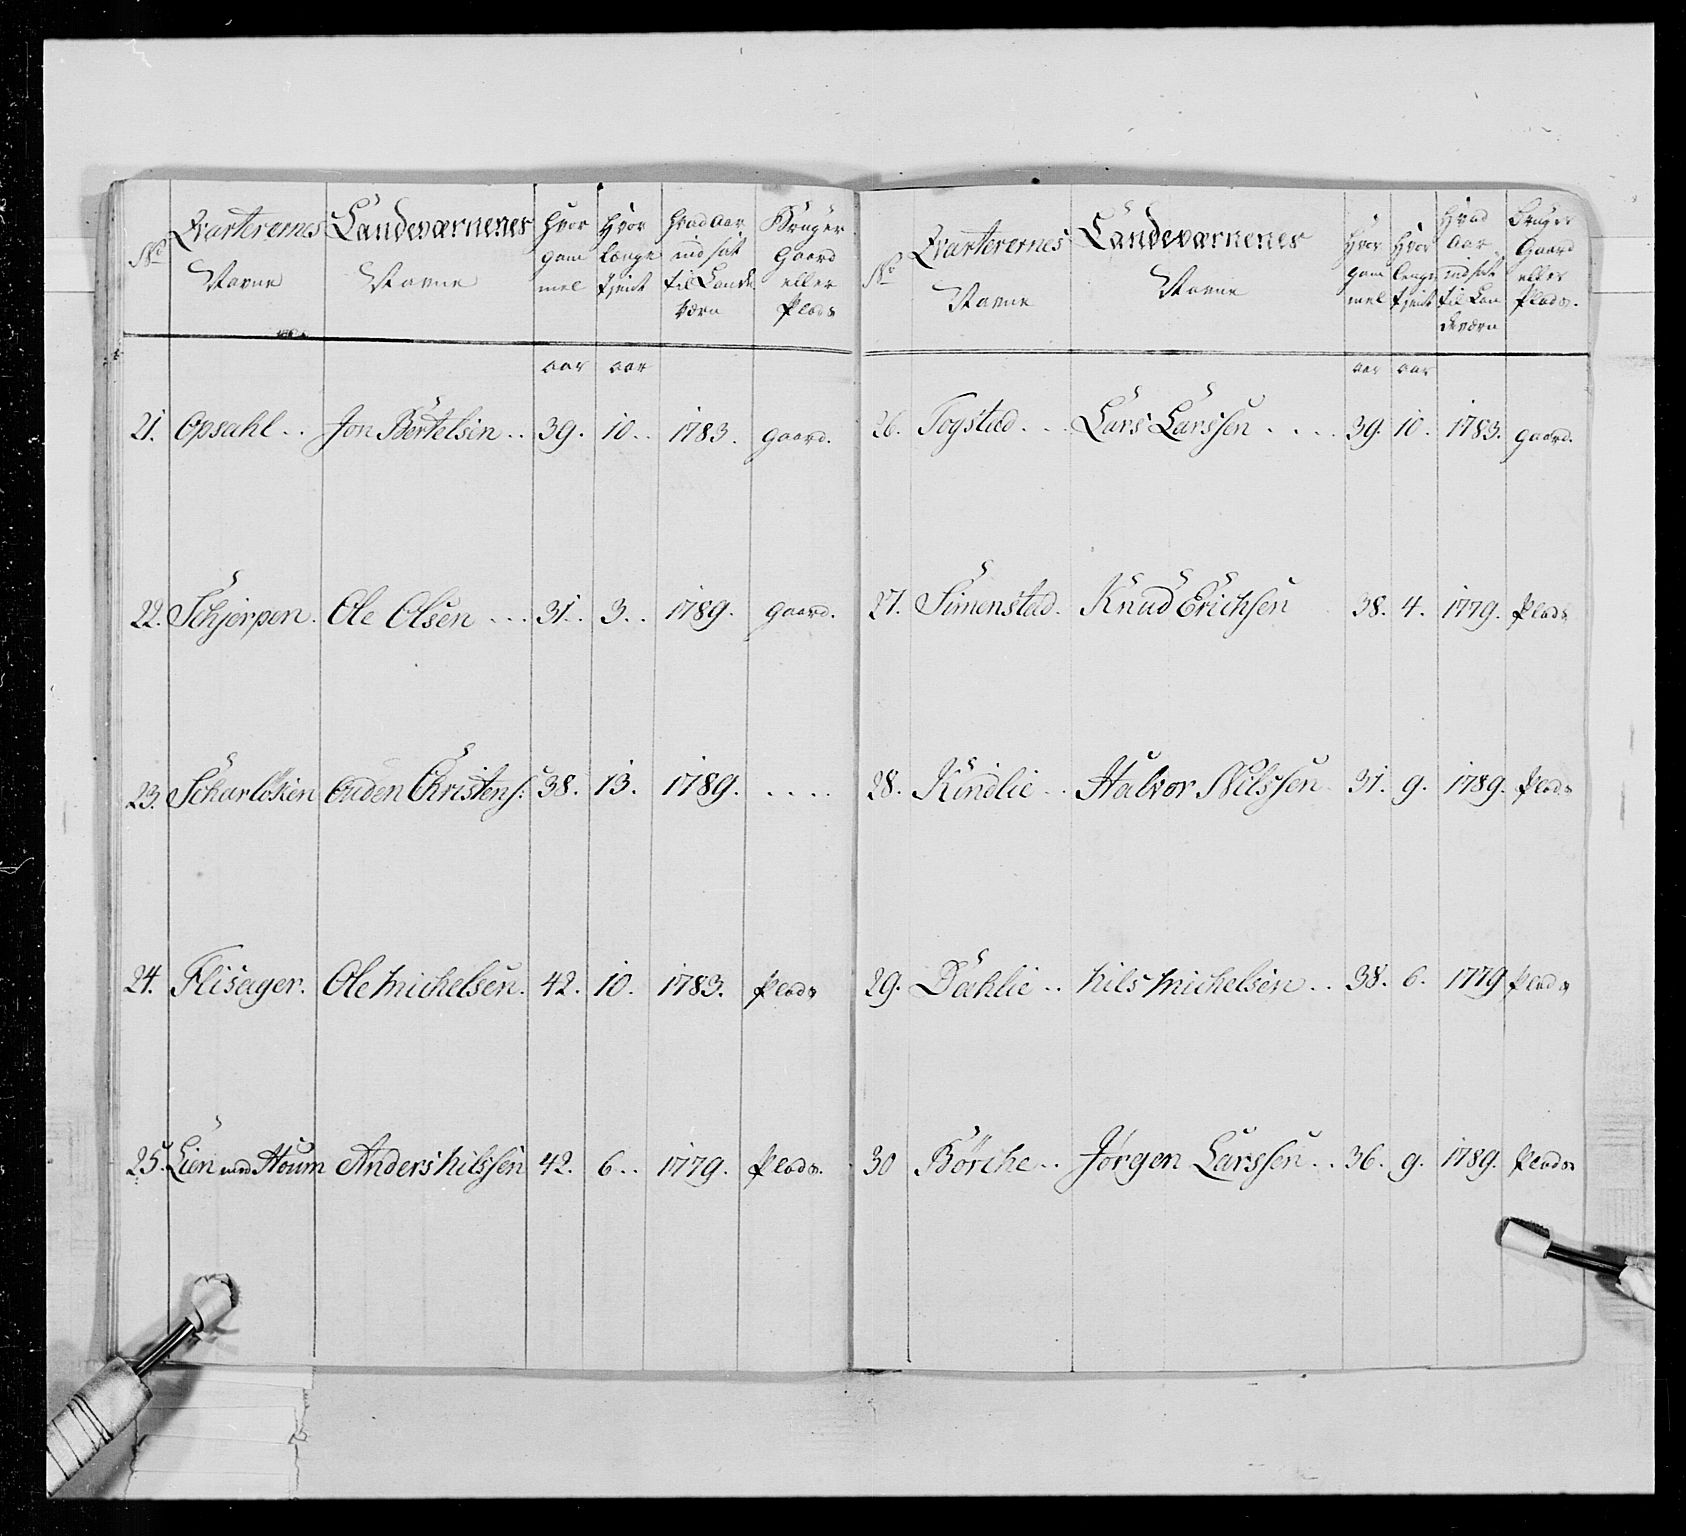 No | Qvarterernes Navne | Landeværnenes Navne | Hvor gammel | Hvor længe tjent | Hvad Aar indsat til Landeværn | Bruger Gaard eller Plads
aar | aar
21. | Opsahl .. | Jon Bertelsen .. | 39. | 10 .. | 1783. | gaard.
22. | Schjerpen. | Ole Olsen ... | 31. | 3 .. | 1789. | gaard.
23. | Scharløkien | Ouden Christens: | 38. | 13. | 1789. | ....
24. | Fliseyer. | Ole Michelsen. | 42. | 10. | 1783. | Plads
25. | Lien med Houm | Anders Nilssen | 42. | 6 .. | 1779. | Plads.
No | Qvarterernes Navne | Landeværnenes Navne | Hvor gammel | Hvor lenge tjent | Hvad Aar indsat til Landeværn | Bruger Gaard eller Plads.
aar | aar
26. | Togstad ... | Lars Larssen .... | 39. | 10. | 1783. | gaard.
27. | Simenstad. | Knud Erichsen | 38. | 4. | 1779. | Plads
28. | Kindlie .. | Halvor Nilssen | 31. | 9. | 1789. | Plads
29. | Dæhlie .. | Nils Michelsen .. | 38. | 6. | 1779 | Plads
30 | Børche .. | Jørgen Larssen .. | 36. | 9. | 1789. | Plads